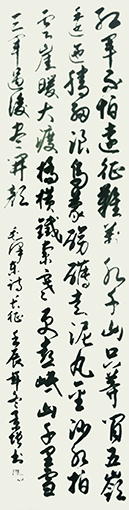 红军不怕远征难万水千山只等闲五岭
逶迤腾细浪乌蒙磅礴走泥丸金沙水拍
云崖暖大渡桥横铁索寒更喜岷山千里雪
三军过后尽开颜 毛泽东诗长征 壬辰年 书